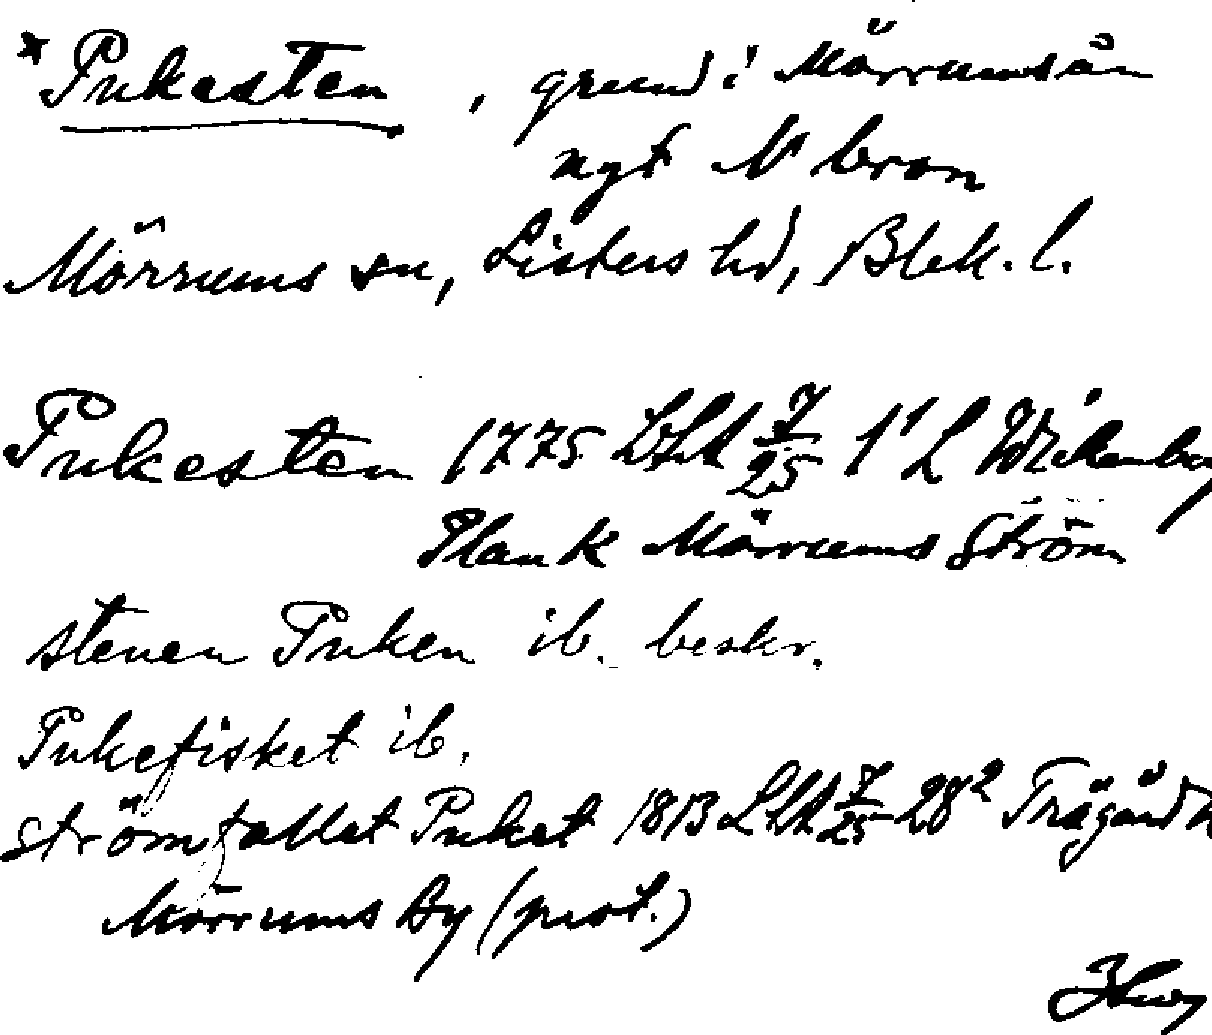 * Pukesten, grund i Mörrumsån
ngt N bron
Mörrums sn, Listers hd, Blek. l.
Pukesten 1775 LSA 7/25 1¹ L Wickenberg
Plank Mörrums Ström
stenen Puken ib. beskr.
Pukefisket ib.
strömfallet Puket 1813 LSA 7/25 28² Trägård
Mörrums by (prot.)